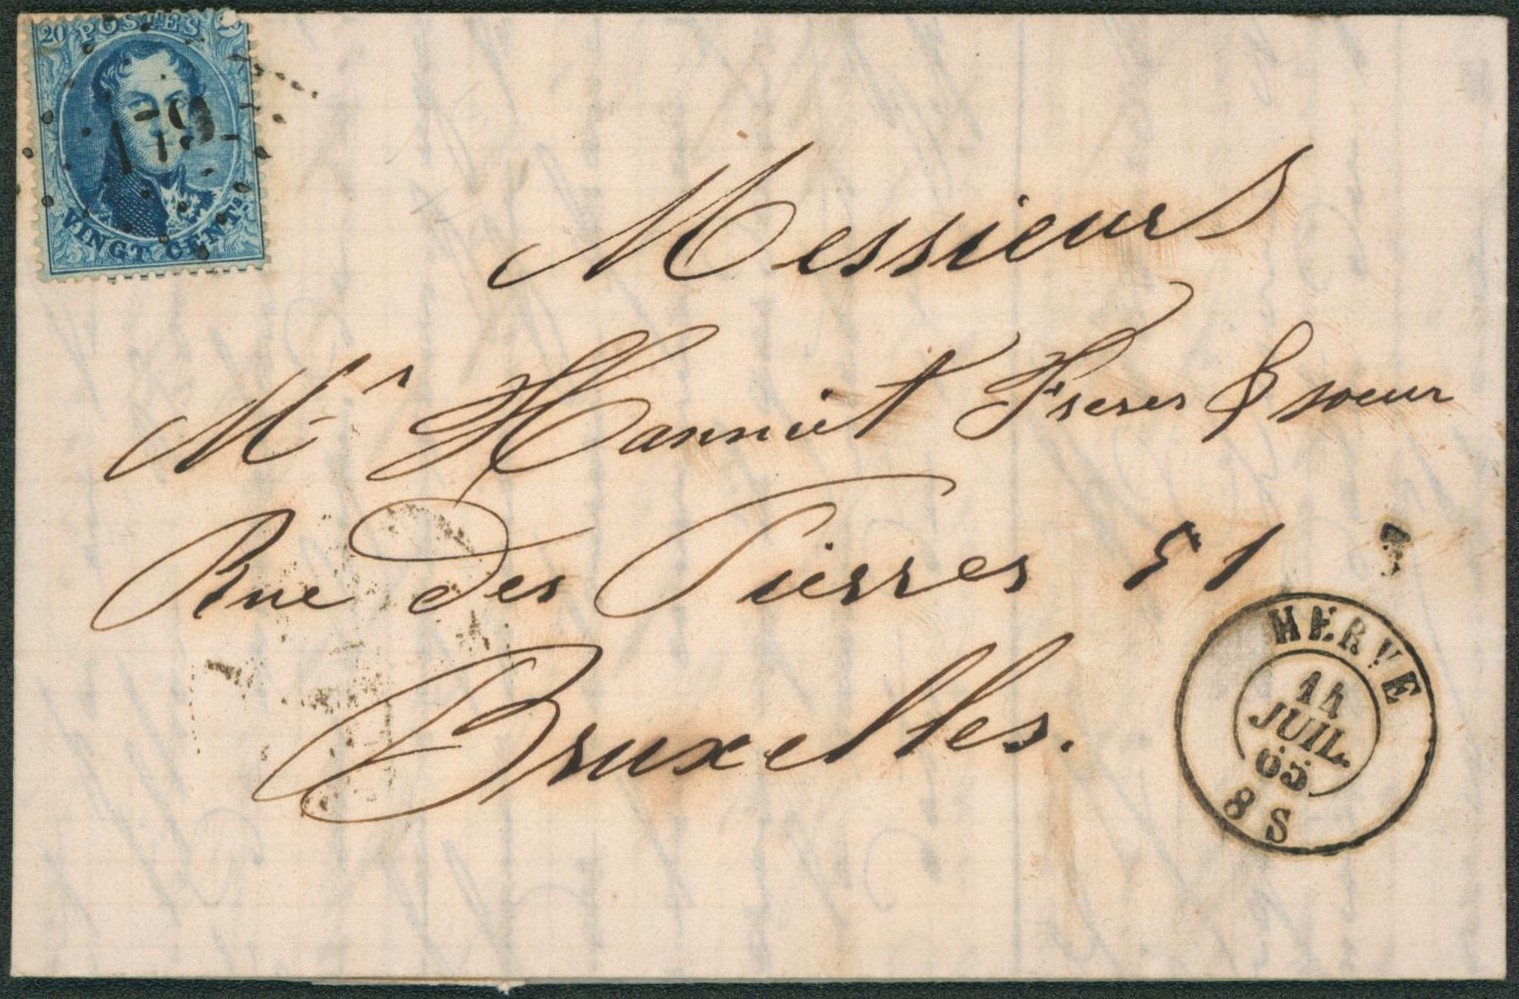 20 POSTES
179
VINGT CENTS
Messieurs
Mr Hanniet Freres & soeur
Rue des Pierres 51
Bruxelles.
HERVE
14
JUIL.
65
8 S